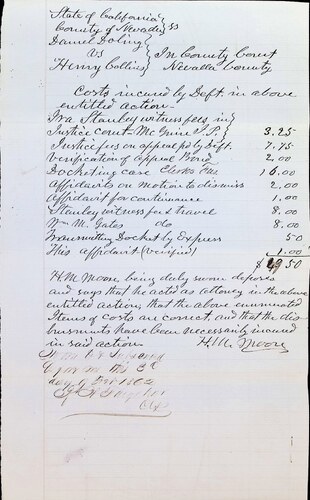 State of California
County of Nevada } ss
Daniel Dolny
vs } In County Court
Henry Collins } Nevada County
Costs incured by Deft. in above
entitled action -
Ira Stanley witness fees in
Justice court McGuire J.P. } 3.25
Justice fees on appeal pd by Deft. 7.75
Verification of appeal Bond 2.00
Docketing case Clerks Fee 16.00
Affidavits on Motion to dismiss 2.00
Affidavit for continuance 1.00
Stanley witness fee & travel 8.00
Wm M. Gates do 8.00
Transmitting Docket by Express 50
This affidavit (verified) 1.00
$ 49.50
H.M. Moore being duly sworn deposes
and says that he acted as attorney in the above
entitled action, that the above enumerated
Items of costs are correct, and that the dis
bursments have been necessarily incured
in said action. H.M. Moore
day of 1862